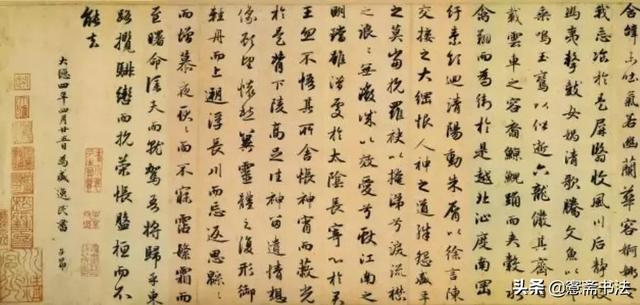 含辭未吐氣若幽蘭華容婀娜令
我忘飡於是屏翳收風川后靜波
馮夷擊鼓女媧清歌騰文魚以警
乘鳴玉鸞以偕逝六龍儼其齊首
載雲車之容裔鯨鯢踊而夾轂水
禽翔而為衛於是越北沚度南岡
紆素領迴清陽動朱脣以徐言陳
交接之大綱恨人神之道殊怨盛年
之莫當抗羅袂以掩涕兮淚流襟
之浪浪無微情以效愛兮獻江南之
明璫雖潛處於太陰長寄心於君
王忽不悟其所舍悵神宵而蔽光
於是背下陵高足往神留遺情想
像顧望懷愁冀靈體之復形御
輕舟而上遡浮長川而忘返思綿綿
而增慕夜耿耿而不寐霑繁霜而
至曙命僕夫而就駕吾將歸乎東
路攬騑轡而抗策悵盤桓而不
能去
大德四年四月廿五日為盛逸民書 子昂
头条 @鴛斋书法